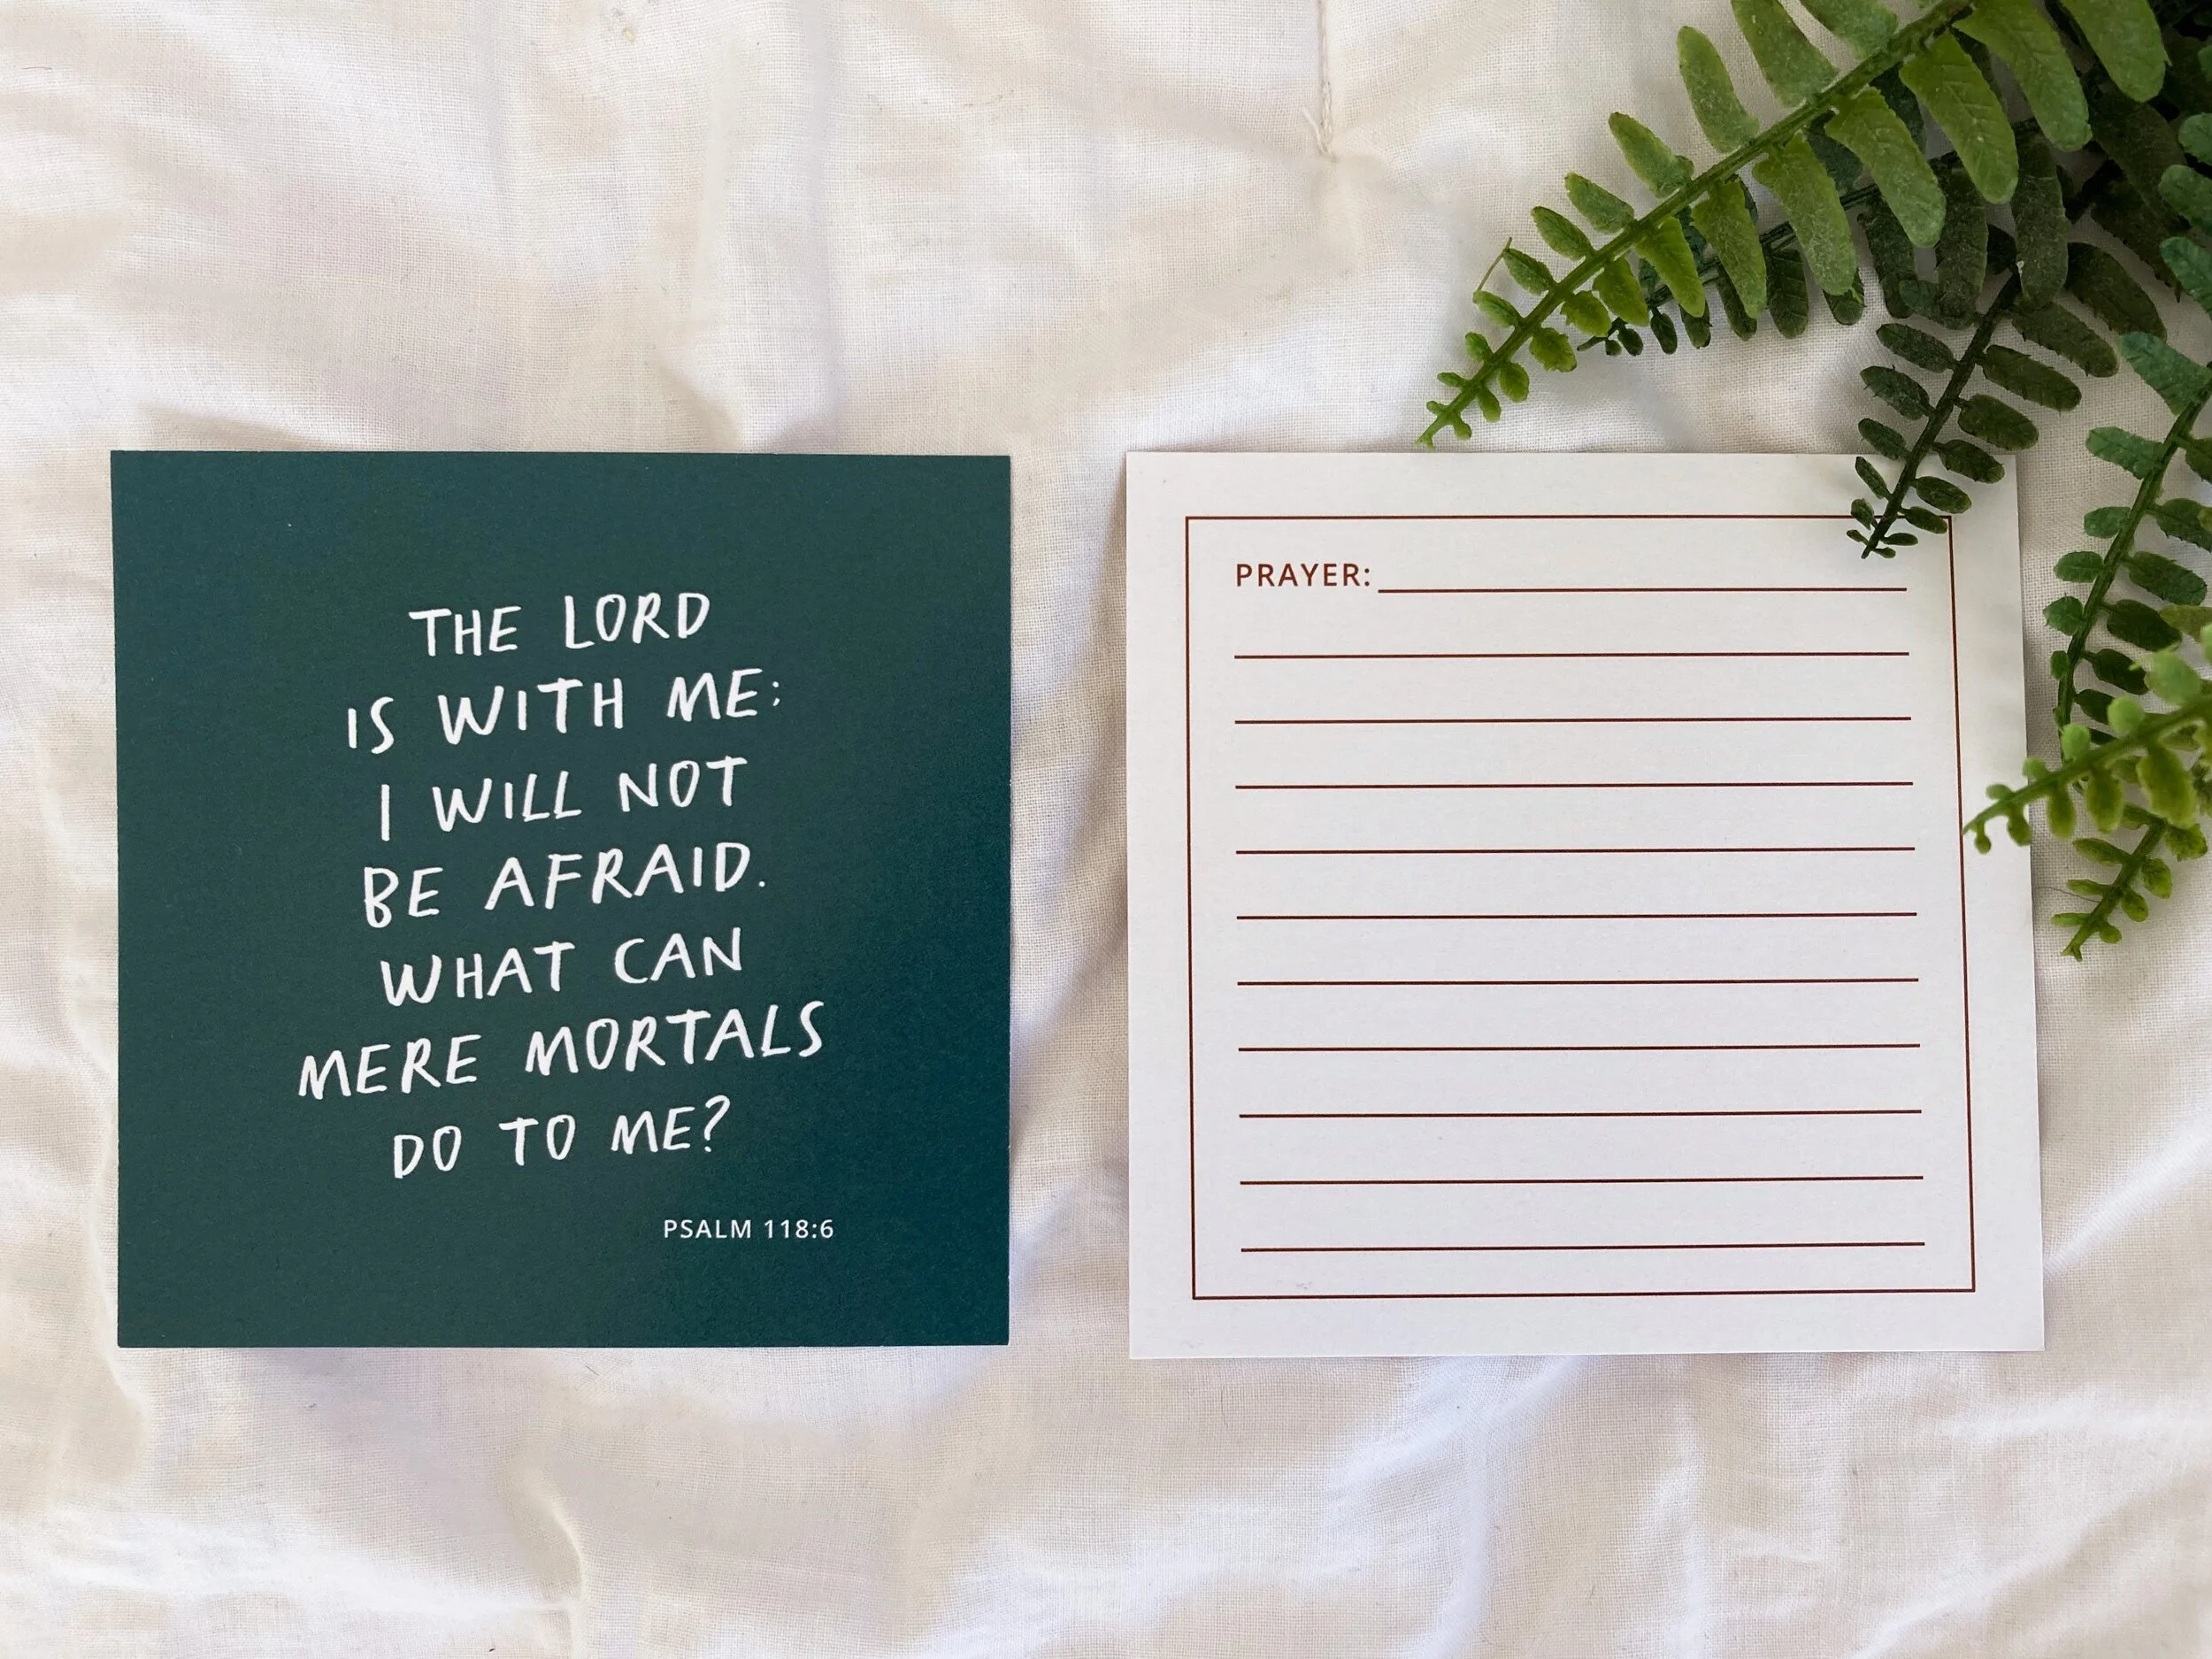 THE LORD
IS WITH ME;
I WILL NOT
BE AFRAID.
WHAT CAN
MERE MORTALS
DO TO ME?
PSALM 118:6
PRAYER: